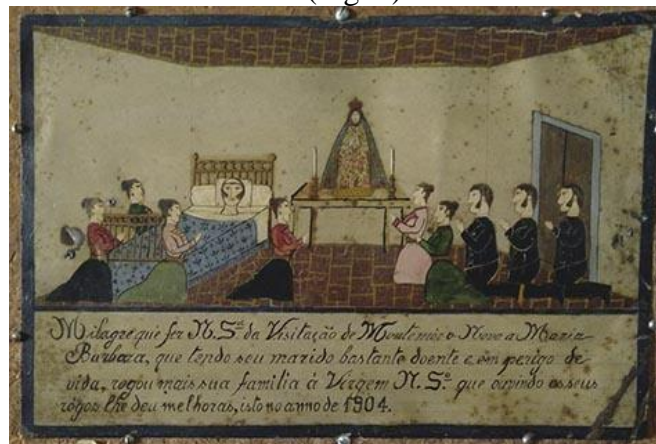 Milagre que fez N. Sª da Visitação de Montemór o Novo a Maria
Barbara, que tendo seu marido bastante doente e em perigo de
vida, rogou mais sua familia á Virgem N. Sª que ouvindo os seus
rogos lhe deu melhoras, isto no anno de 1904.